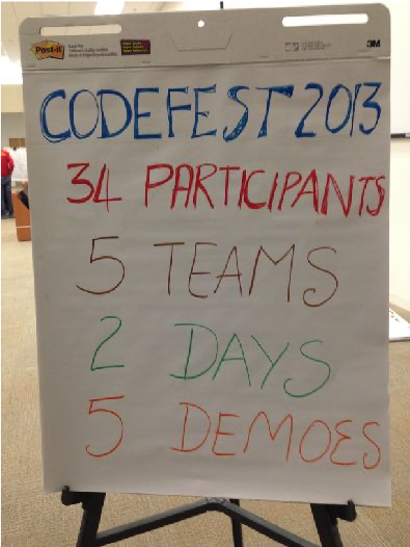 Post-it
3M
CODEFEST 2013
34 PARTICIPANTS
5 TEAMS
2 DAYS
5 DEMOES